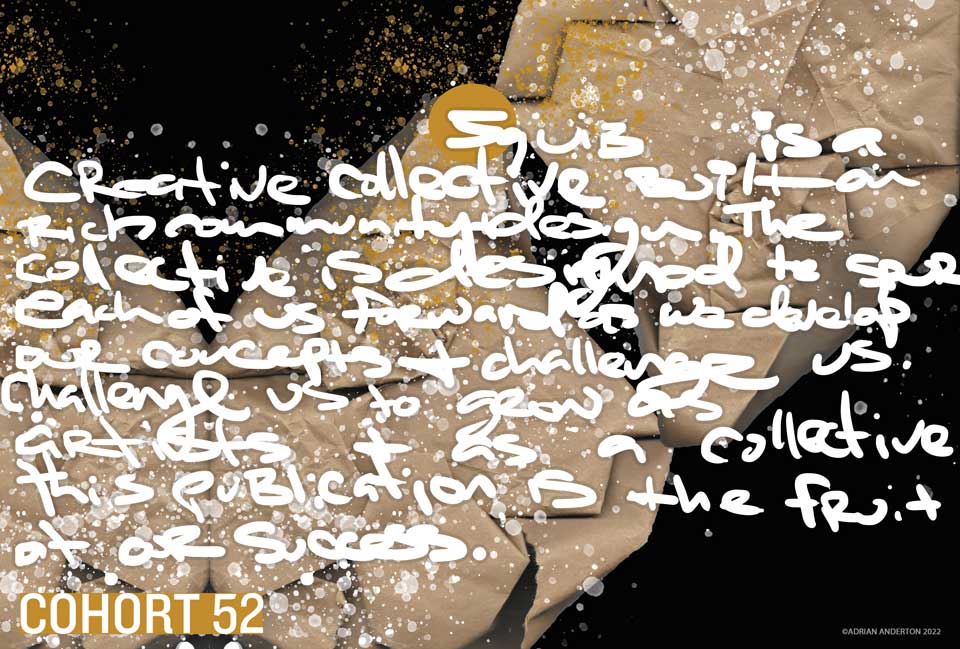 Squiz is a
Creative collective built on
Rich community design. The
collective is designed to
Each of us forward as we develop
our concepts + challenge us.
Challenge us to grow as
artists + as a collective
this publication is the fruit
of our success.
COHORT 52
©ADRIAN ANDERTON 2022